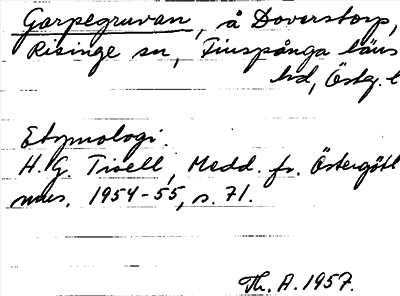 Garpegruvan, å Doverstorp,
Risinge sn, Finspånga läns
hd, Österg. l
Etymologi.
H. G. Tisell, Medd. fr. Östergötl
mus. 1954-55, s. 71.
Th. A. 1957.